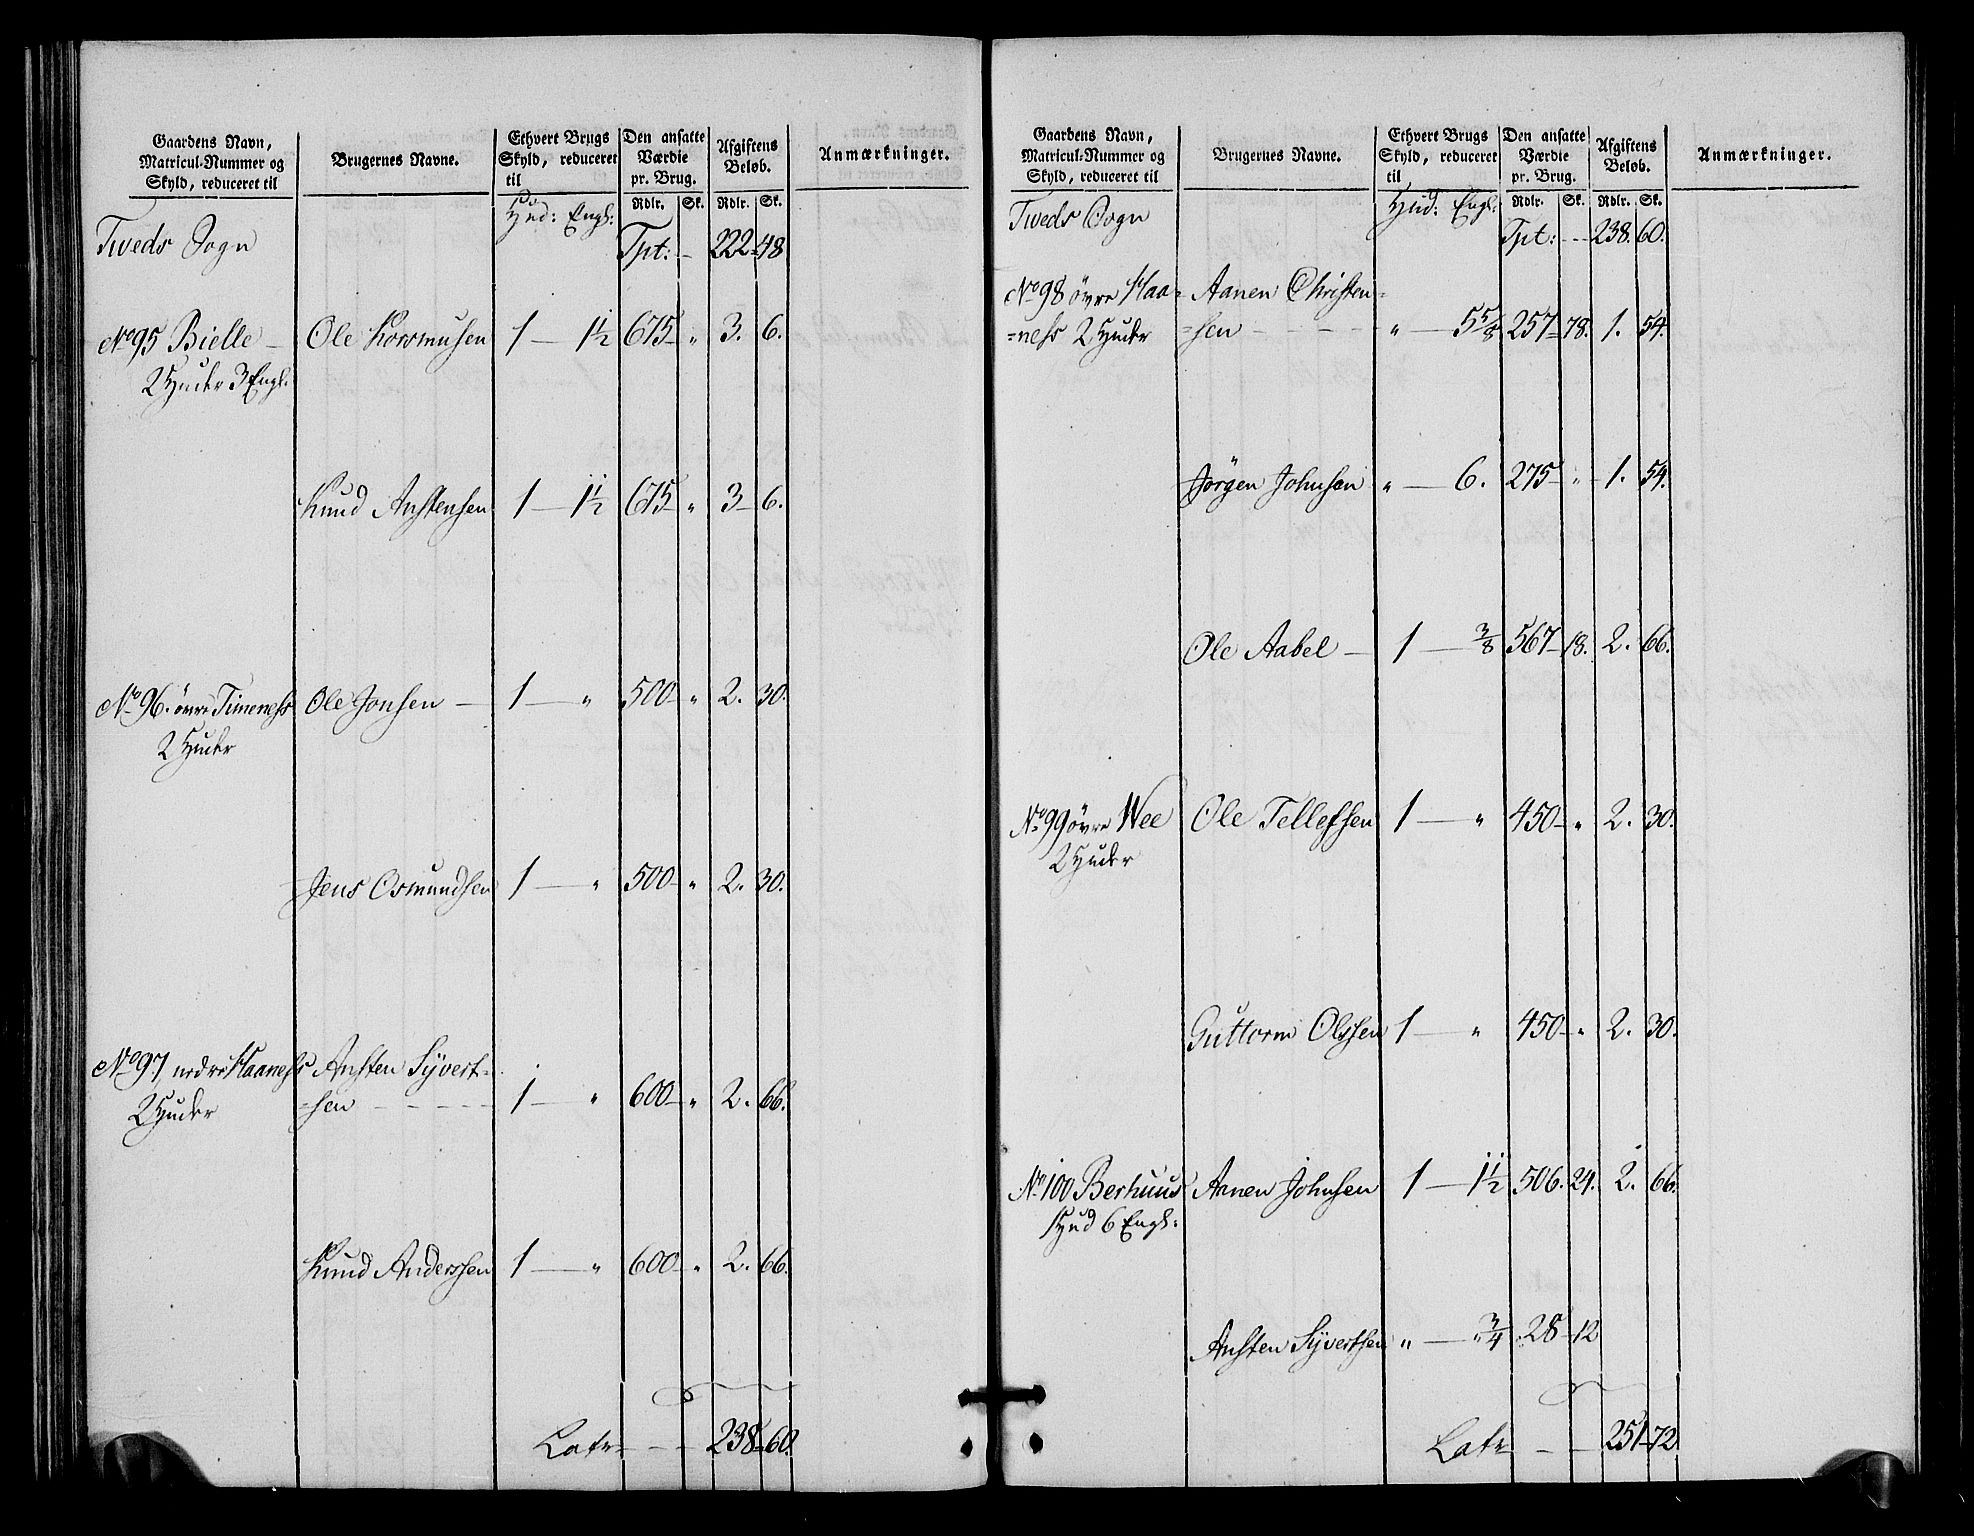 Gaardens Navn,
Matricul-Nummer og
Skyld, reduceret til
Brugernes Navne.
Ethvert Brugs
Skyld, reduceret
til
Den ansatte
Værdie
pr. Brug.
Afgiftens
Beløb.
Anmærkninger.
Rdlr. Sk. Rdlr. Sk.
Hud: Engl:
Tweds Sogn
Tpt: - 222-48
No 95 Bielle - Ole Korsmusen 1 - 1½ 675 - „ 3. 6.
2 Huder 3 Engl:
Knud Anstensen 1 - 1½ 675 - „ 3 - 6.
No 96. övre Timeness Ole Jonsen - 1 - „ 500 - „ 2. 30.
2 Huder
Jens Osmundsen 1 - „ 500 - „ 2. 30.
No 97, nedre Haaness Ansten Syvert=
2 Huder =sen - - - - 1 - „ 600 - „ 2. 66.
Knud Anderssen 1 - „ 600 - „ 2. 66.
Latr - - - 238-60.
Gaardens Navn,
Matricul-Nummer og
Skyld, reduceret til
Brugernes Navne.
Ethvert Brugs
Skyld, reduceret
til
Den ansatte
Værdie
pr. Brug.
Afgiftens
Beløb.
Anmærkninger.
Rdlr. Sk. Rdlr. Sk.
Hud: Engl:
Tweds Sogn
Tpt: - - - 238. 60.
No 98 övre Haa= Aanen Christen=
=ness 2 Huder =sen - - - - - „ - 5 5/8 257 - 78. 1. 54.
Jörgen Johnsen „ - 6. 275 - „ 1. 54.
Ole Aabel - 1 - 3/8 567 - 18. 2. 66.
No 99 övre Wee Ole Tellefsen 1 - „ 450 - „ 2. 30.
2 Huder
Guttorm Olssen 1 - „ 450 - „ 2. 30.
No 100 Berhuus Aanen Johnsen 1 - 1½ 506. 24. 2. 66.
Hud 6 Engl:
Ansten Syvertsen „ - „ 3/4 28 - 12
Latr - - 251-72